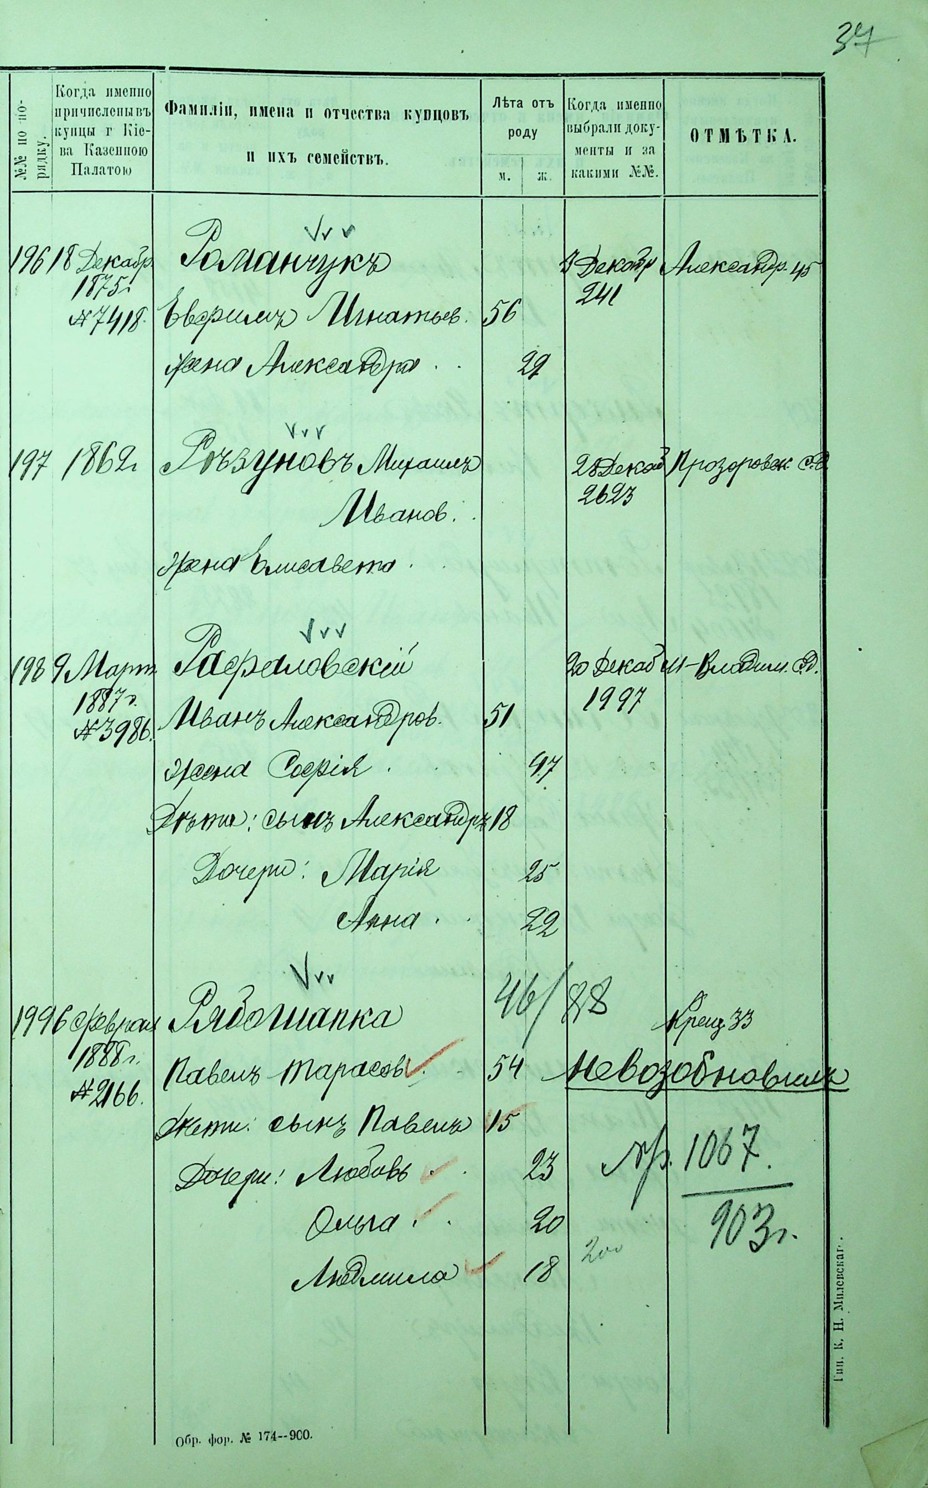 37
№№ по по-
рядку.
Когда именно
причислены въ
купцы г Кіе-
ва Казенною
Палатою
Фамиліи, имена и отчества купцовъ
и ихъ семействъ.
Лѣта отъ
роду
м. ж.
Когда именно
выбрали доку-
менты и за
какими №№.
ОТМѢТКА.
196 18 Декабр. Романчукъ 3 Декабр Александр. 45
1875 г 241
№ 7418. Евфимъ Игнатьев. 56
жена Александра 29
197 1862 г Рѣзуновъ Михаилъ 28 Декаб Прозоровск.
Иванов. 2623
жена Елисавета
198 9 Март. Рафаловскій 20 Декаб М-Владим.
1887 г. 1997
№ 3986. Иванъ Александров. 51
жена Софія 47
Дѣти: сынъ Александръ 18
Дочери: Марія 25
Анна 22
199 6 Февраля Рябошапка 46/88 Крещ 33
1888 г.
№ 2166. Павелъ Тарасов 54 Невозобновилъ
Дѣти: сынъ Павелъ 15
Дочери: Любовь 23 1067
Ольга 20 903 г.
Людмила 18 200
Тип. К. Н. Милевскаг.
Обр. фор. № 174--900.